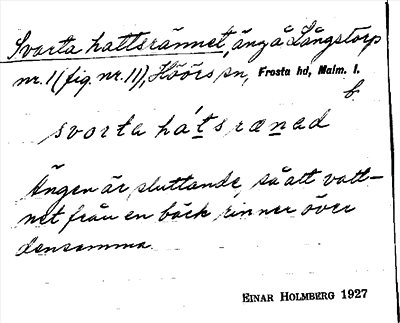 Svarta hattsrännet, äng å Långstorp
nr. 1 (fig. nr. 11), Höörs sn, Frosta hd, Malm. l.
b.
svorta há't̲sræn̲ad
Ängen är sluttande, så att vatt-
net från en bäck rinner över
densamma.
EINAR HOLMBERG 1927